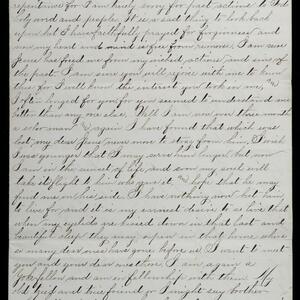 repentance for I am truly sorry for past actions to God
holy word and people. It is a sad thing to look back
upon but I have faithfully prayed for forgiveness and
now my heart and mind is free from remorse. I am sure
Jesus has freed me from my wicked actions and sins of
the past. I am sure you will agree with me to know
this for I well know the interest you took in me, and
I often longed for you for you seemed to understand me
better than any one else. Well I am now over three months
a again I have found that which was
lost, my dear Jesus never more to stray from him, I wish
I was younger that I may serve him longer but now
I am in the sunset of life and soon my soul will
take its flight to him who gave it. and I hope that he may
find me on his side. I have nothing now but him
to live for and it is my earnest desire to so live that
when my eyelids are closed down in that last and
long night for me may open in that home where
so many dear ones have gone before us I want to meet
you and your dear ones there. I am again a
and am in fellowship with them. My
old and true friend or I might say brother